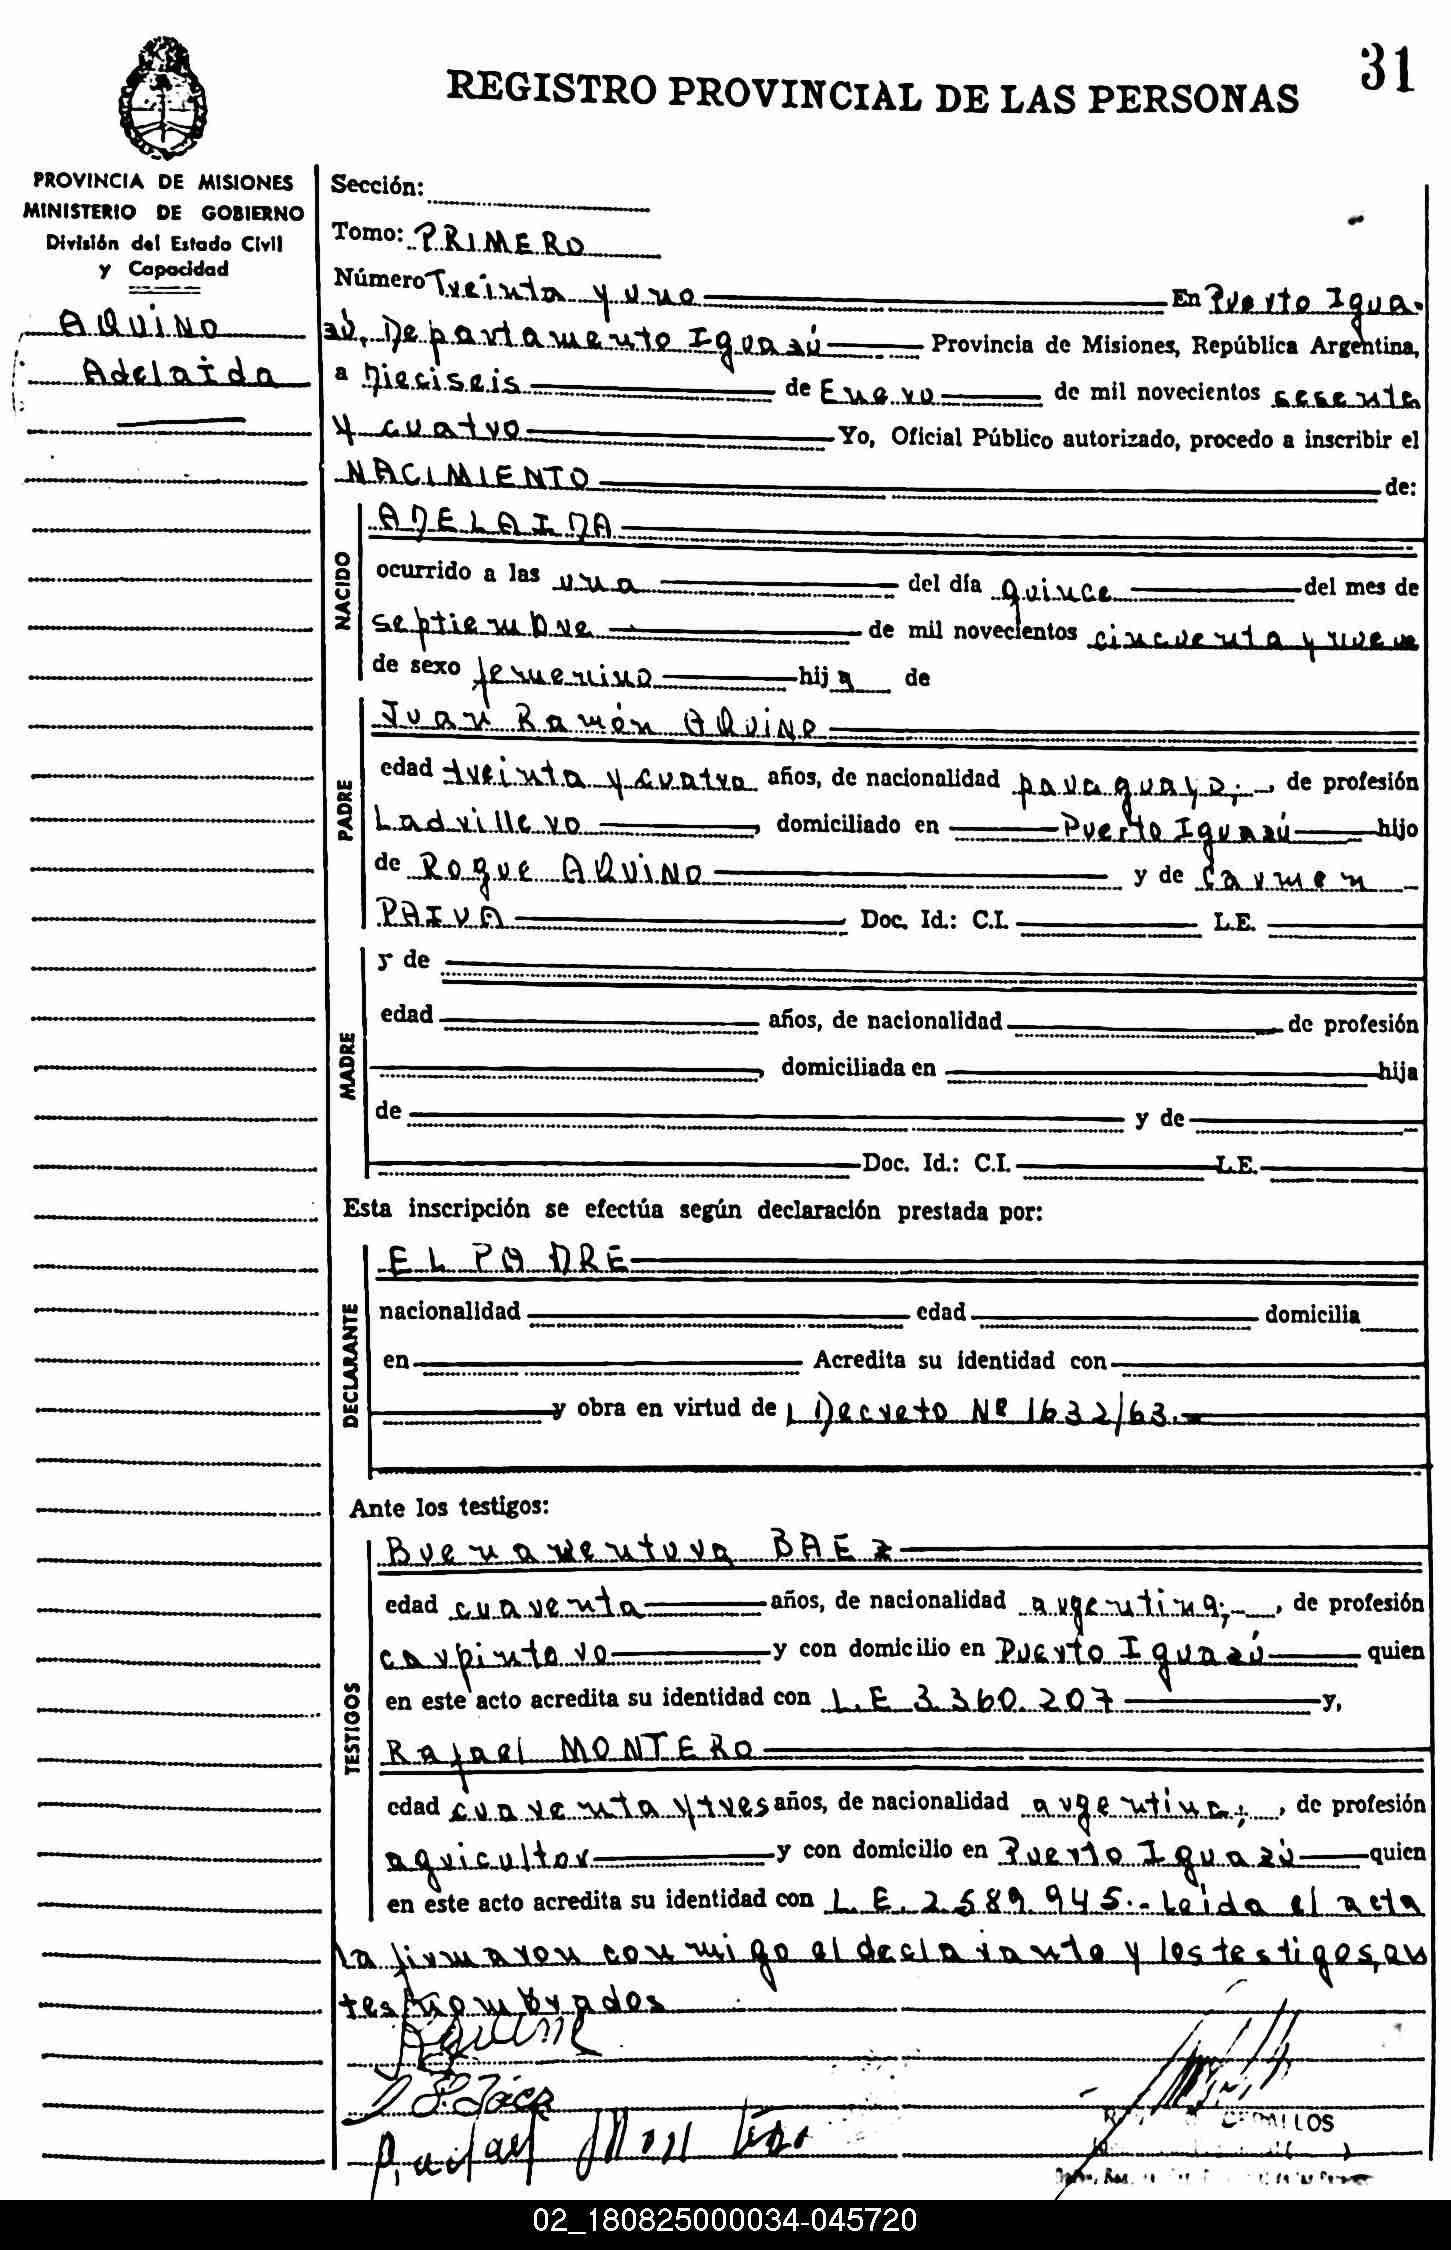 31
REGISTRO PROVINCIAL DE LAS PERSONAS
PROVINCIA DE MISIONES
MINISTERIO DE GOBIERNO
División del Estado Civil
y Capacidad
AQUINO
Adelaida
Sección:
Tomo: PRIMERO
Número Treinta y uno En Puerto Igua-
zú, Departamento Iguazú Provincia de Misiones, República Argentina,
a Dieciseis de Enero de mil novecientos sesenta
y cuatro Yo, Oficial Público autorizado, procedo a inscribir el
NACIMIENTO de:
NACIDO
ADELAIDA
ocurrido a las una del día quince del mes de
septiembre de mil novecientos cincuenta y nueve
de sexo femenino hija de
PADRE
Juan Ramón AQUINO
edad treinta y cuatro años, de nacionalidad paraguayo;-, de profesión
Ladrillero, domiciliado en Puerto Iguazú hijo
de Roque AQUINO y de Carmen
PAIVA Doc. Id.: C.I. L.E.
MADRE
y de
edad años, de nacionalidad de profesión
, domiciliada en hija
de y de
Doc. Id.: C.I. L.E.
Esta inscripción se efectúa según declaración prestada por:
DECLARANTE
EL PADRE
nacionalidad edad domicilia
en Acredita su identidad con
y obra en virtud de Decreto Nº 1632/63.-
Ante los testigos:
TESTIGOS
Buenamentura BAEz
edad cuarenta años, de nacionalidad argentina;-, de profesión
carpintero y con domicilio en Puerto Iguazú quien
en este acto acredita su identidad con L.E 3.360.207 y,
Rafael MONTERO
edad cuarenta y tres años, de nacionalidad argentina;-, de profesión
agricultor y con domicilio en Puerto Iguazú quien
en este acto acredita su identidad con L.E. 2.589.945.- Leída el acta
la firmaron conmigo el declarante y los testigos, an
tes nombrados
Rafael Montero
CEBALLOS
02_180825000034-045720